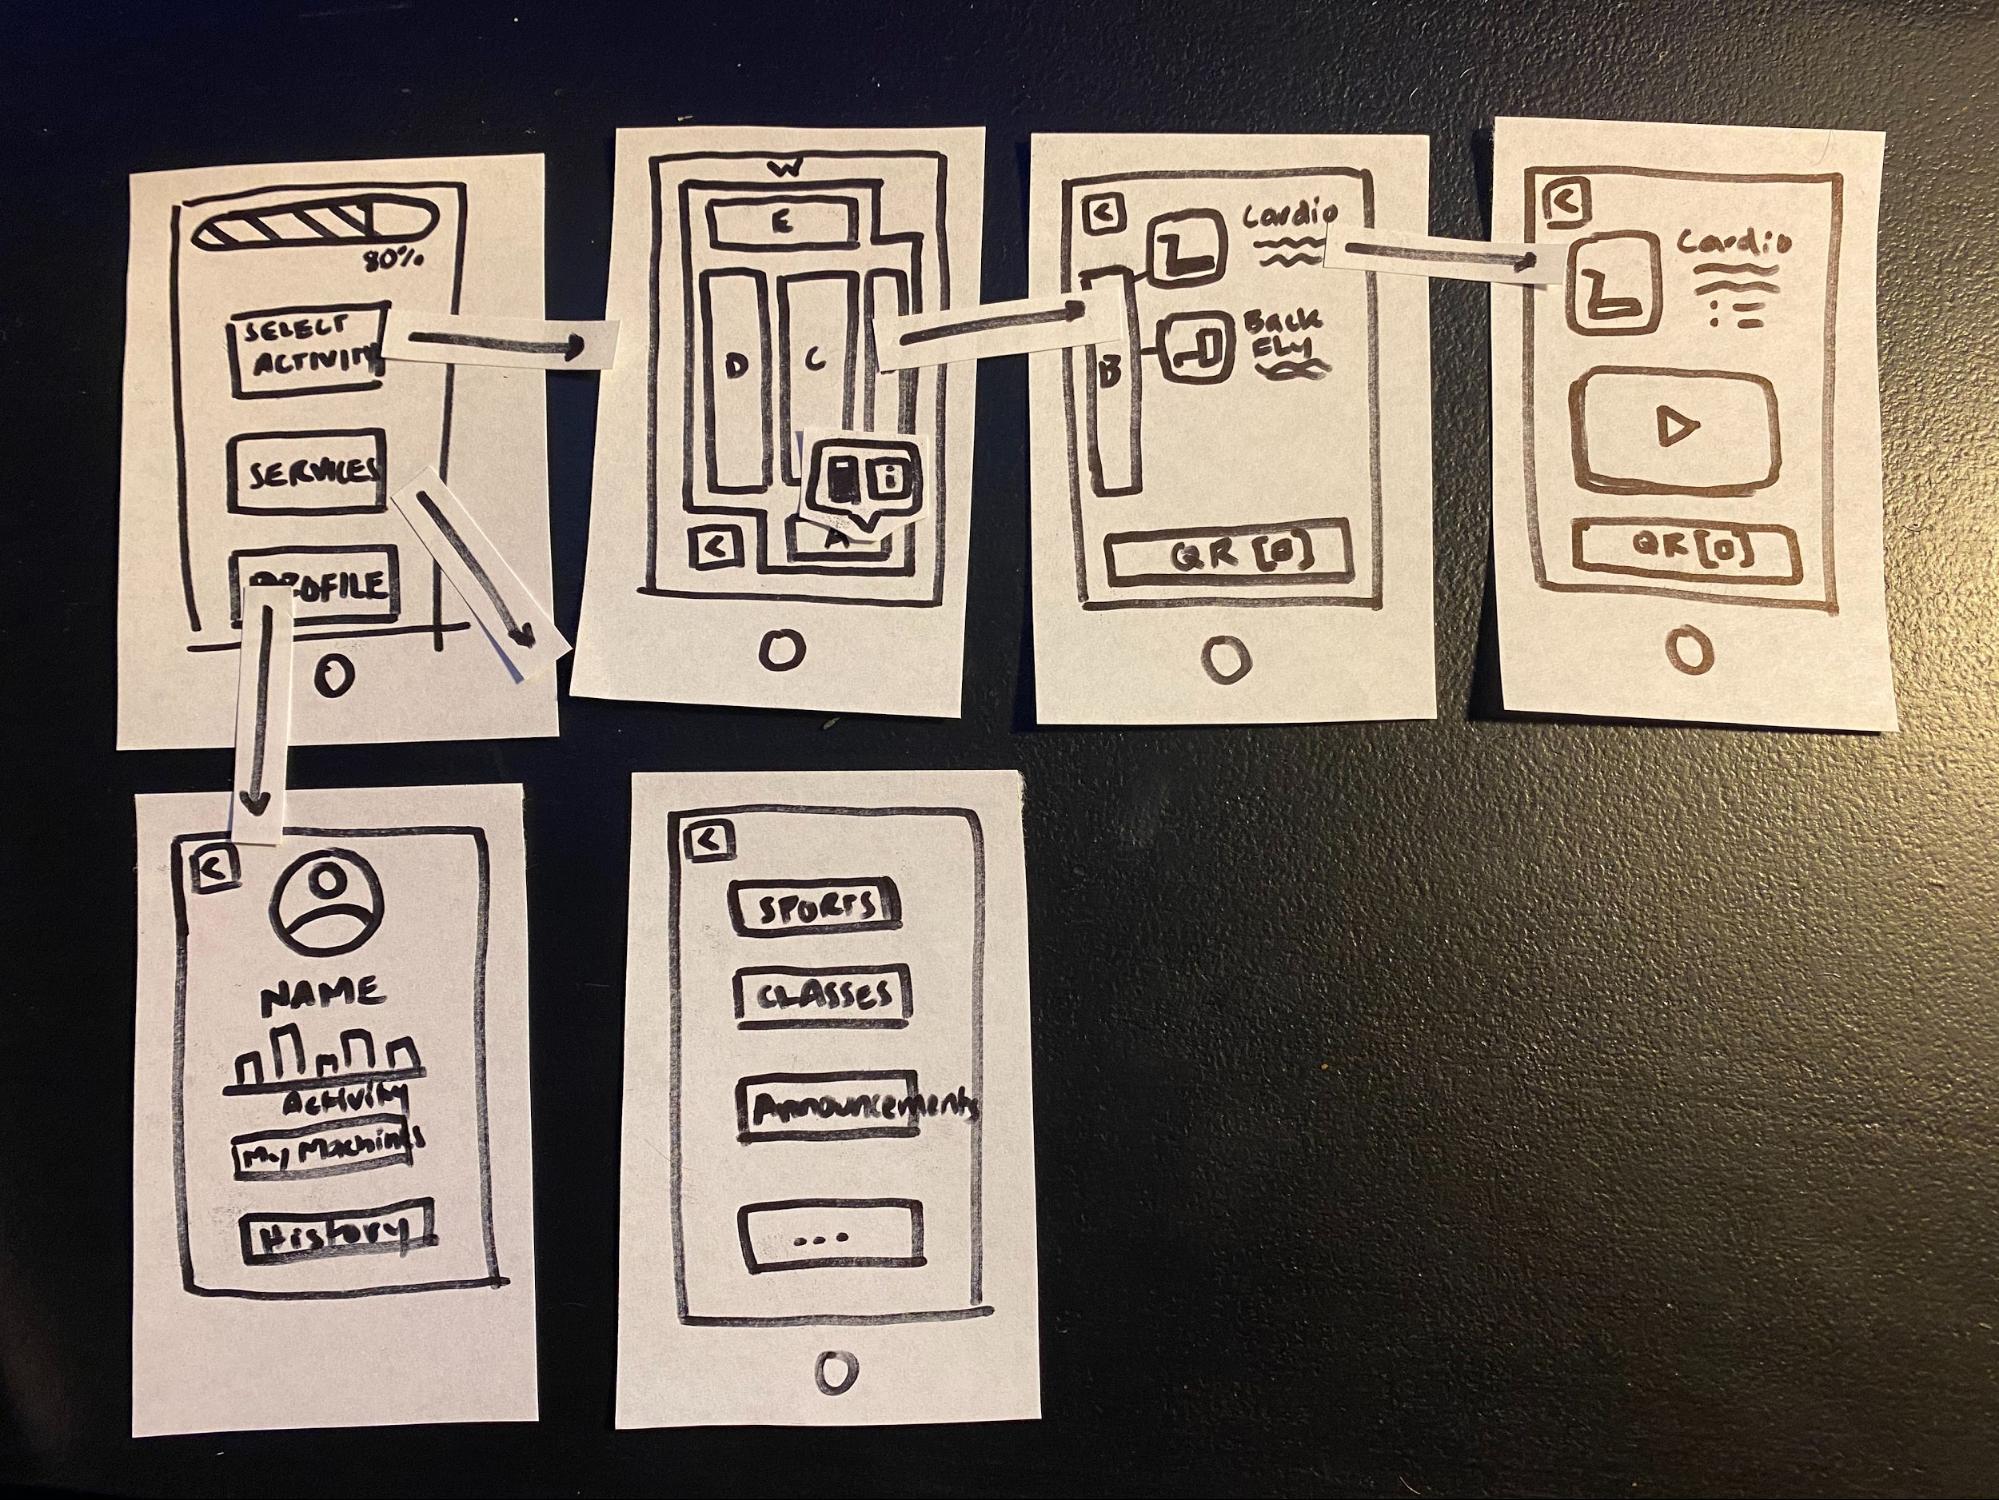 80%
SELECT
ACTIVITY
SERVICES
PROFILE
W
E
D
C
i
A
<
<
Cardio
Back
Fly
B
QR [O]
<
Cardio
QR [O]
<
NAME
Activity
My Machines
History
<
SPORTS
CLASSES
Announcements
...